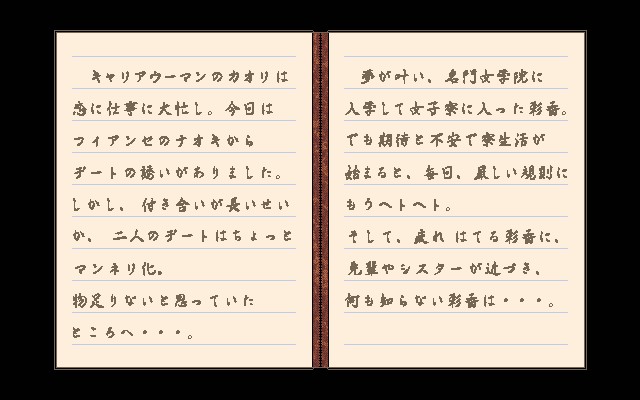 キャリアウーマンのカオリは
恋に仕事に大忙し。今日は
フィアンセのナオキから
デートの誘いがありました。
しかし、付き合いが長いせい
か、二人のデートはちょっと
マンネリ化。
物足りないと思っていた
ところへ・・・。
夢が叶い、名門女学院に
入学して女子寮に入った彩香。
でも期待と不安で寮生活が
始まると、毎日、厳しい規則に
もうヘトヘト。
そして、疲れはてる彩香に、
先輩やシスターが近づき、
何も知らない彩香は・・・。